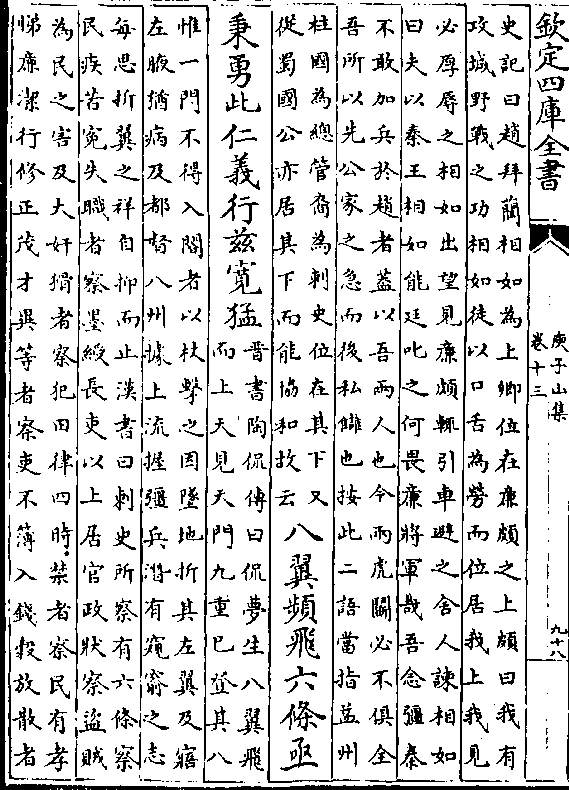 欽定四庫全書
庾子山集
卷十三
九十八
史記曰趙拜藺相如為上卿位在廉頗之上頗曰我有
攻城野戰之功相如徒以口舌為勞而位居我上我見
必厚辱之相如出望見廉頗輒引車避之舍人諫相如
曰夫以秦王相如能廷叱之何畏廉將軍哉吾念彊秦
不敢加兵於趙者葢以吾兩人也今兩虎鬬必不俱全
吾所以先公家之急而後私讎也按此二語當指益州
柱國為總管裔為刺史位在其下又
從蜀國公亦居其下而能協和故云
八翼頻飛六條亟
秉勇此仁義行兹寛猛
晉書陶侃傳曰侃夢生八翼飛
而上天見天門九重已登其八
惟一門不得入閽者以杖擊之因墜地折其左翼及寤
左腋猶病及都督八州據上流握彊兵潛有窺窬之志
每思折翼之祥自抑而止漢書曰刺史所察有六條察
民疾苦寃失職者察墨綬長吏以上居官政狀察盜賊
為民之害及大奸猾者察犯田律四時禁者察民有孝
悌廉潔行修正茂才異等者察吏不簿入錢穀放散者